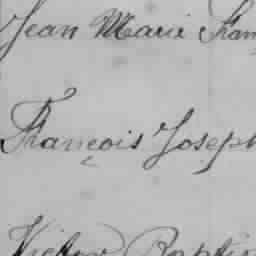 Jean Marie Fran
François Joseph
Victor Baptis